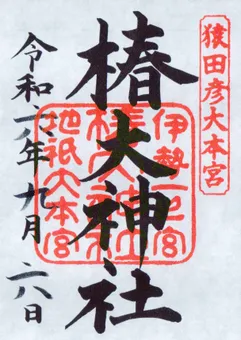 猿田彦大本宮
椿大神社
伊勢一之宮
椿大神社
地祇大本宮
令和六年九月六日